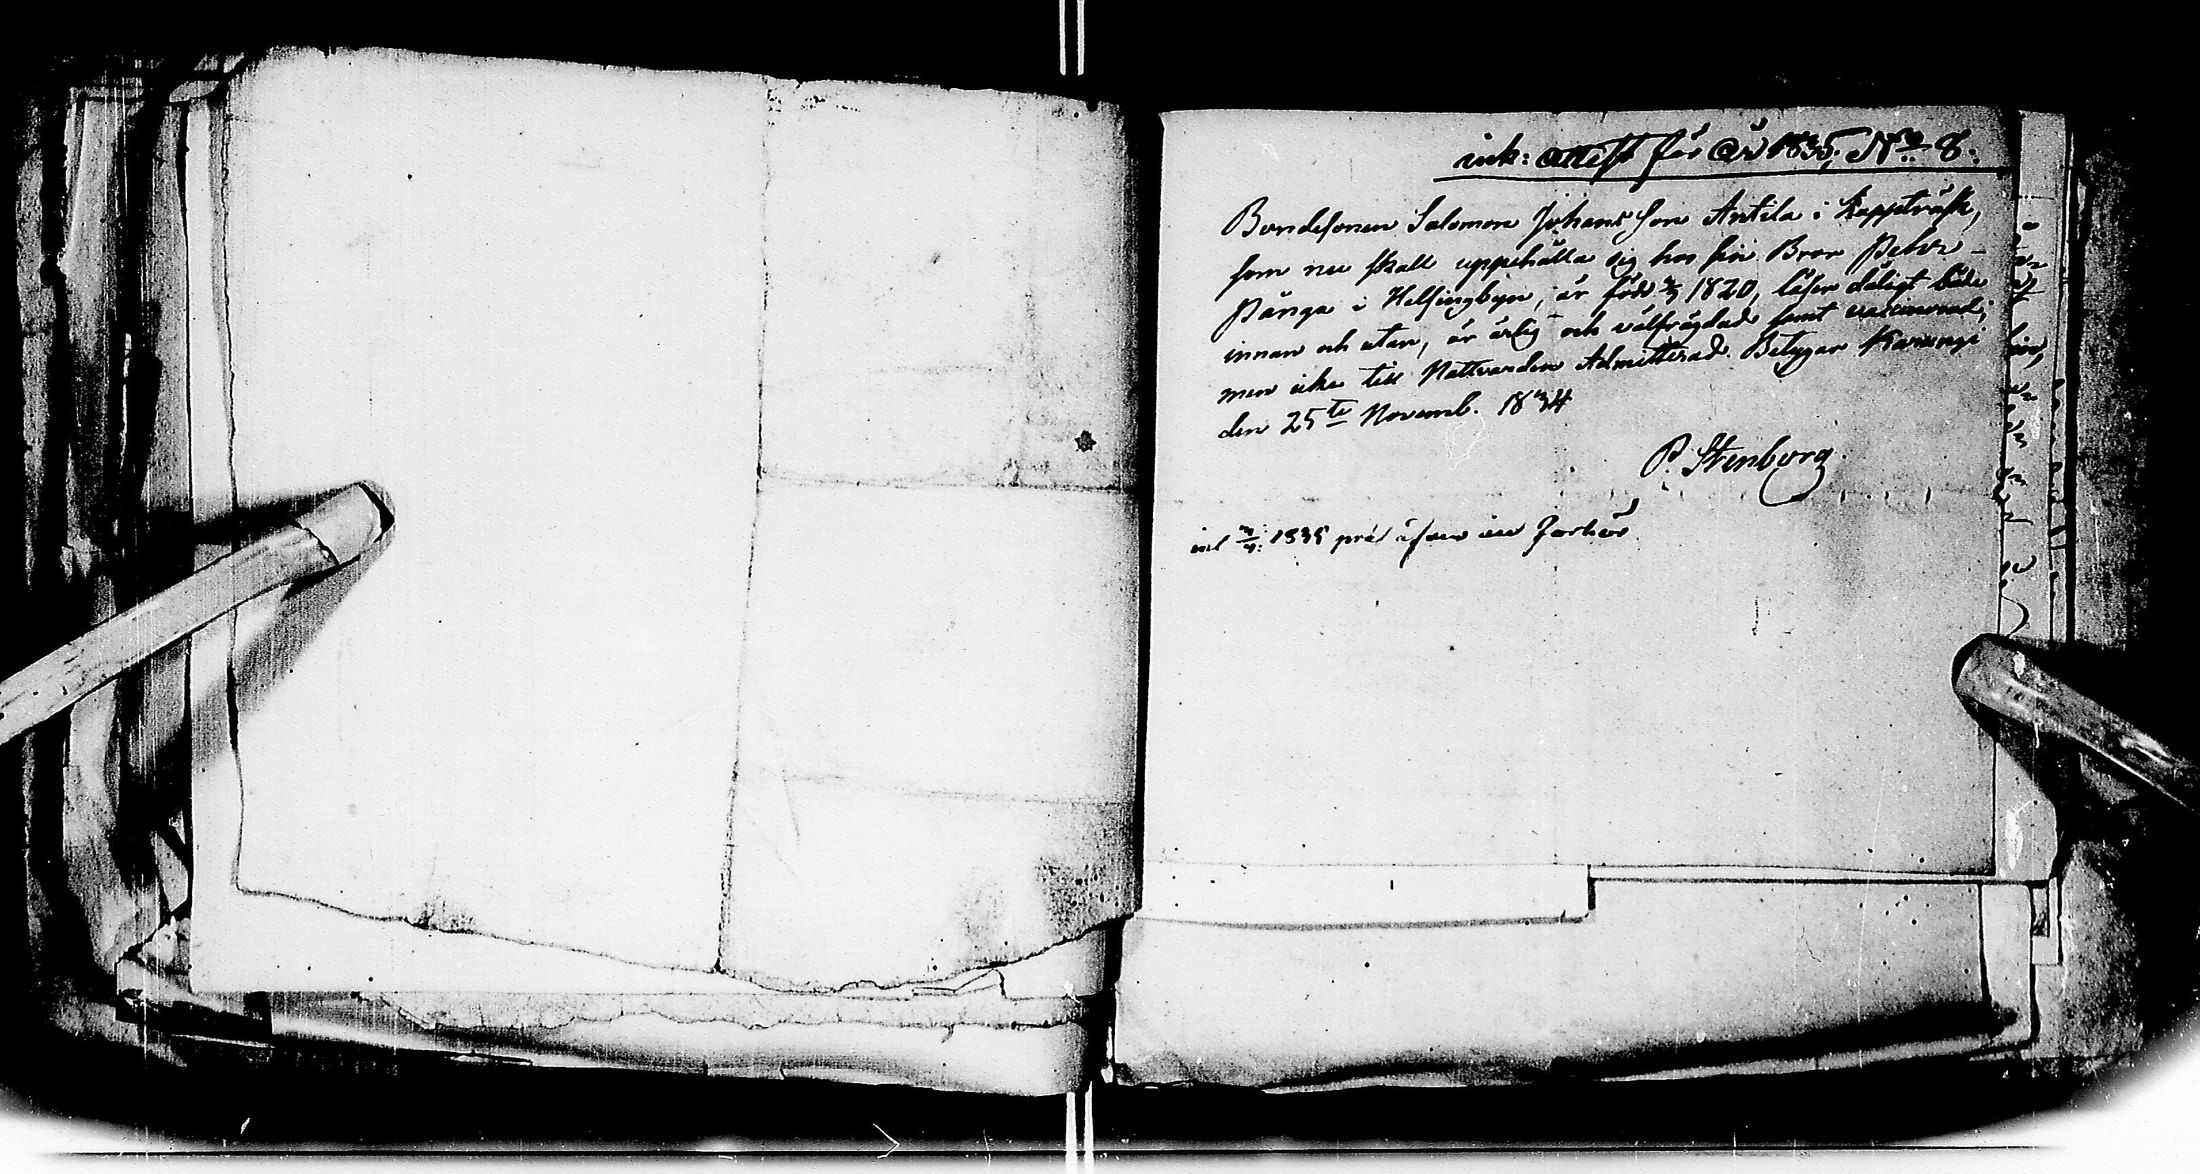 ink: attest för År 1835, No 8.
Bondesonen Salomon Johansson Antila i Kappträsk,
som nu skall uppehålla sig hos sin Bror Petter
Pånga i Helsingbyn, är född 1820, läser dåligt både
innan och utan, är ärlig och välfrägdad samt vaccinerad;
men icke till Nattvarden Admitterad. Betygar Karungi
den 25te Novemb. 1834
P. Stenborg
1835